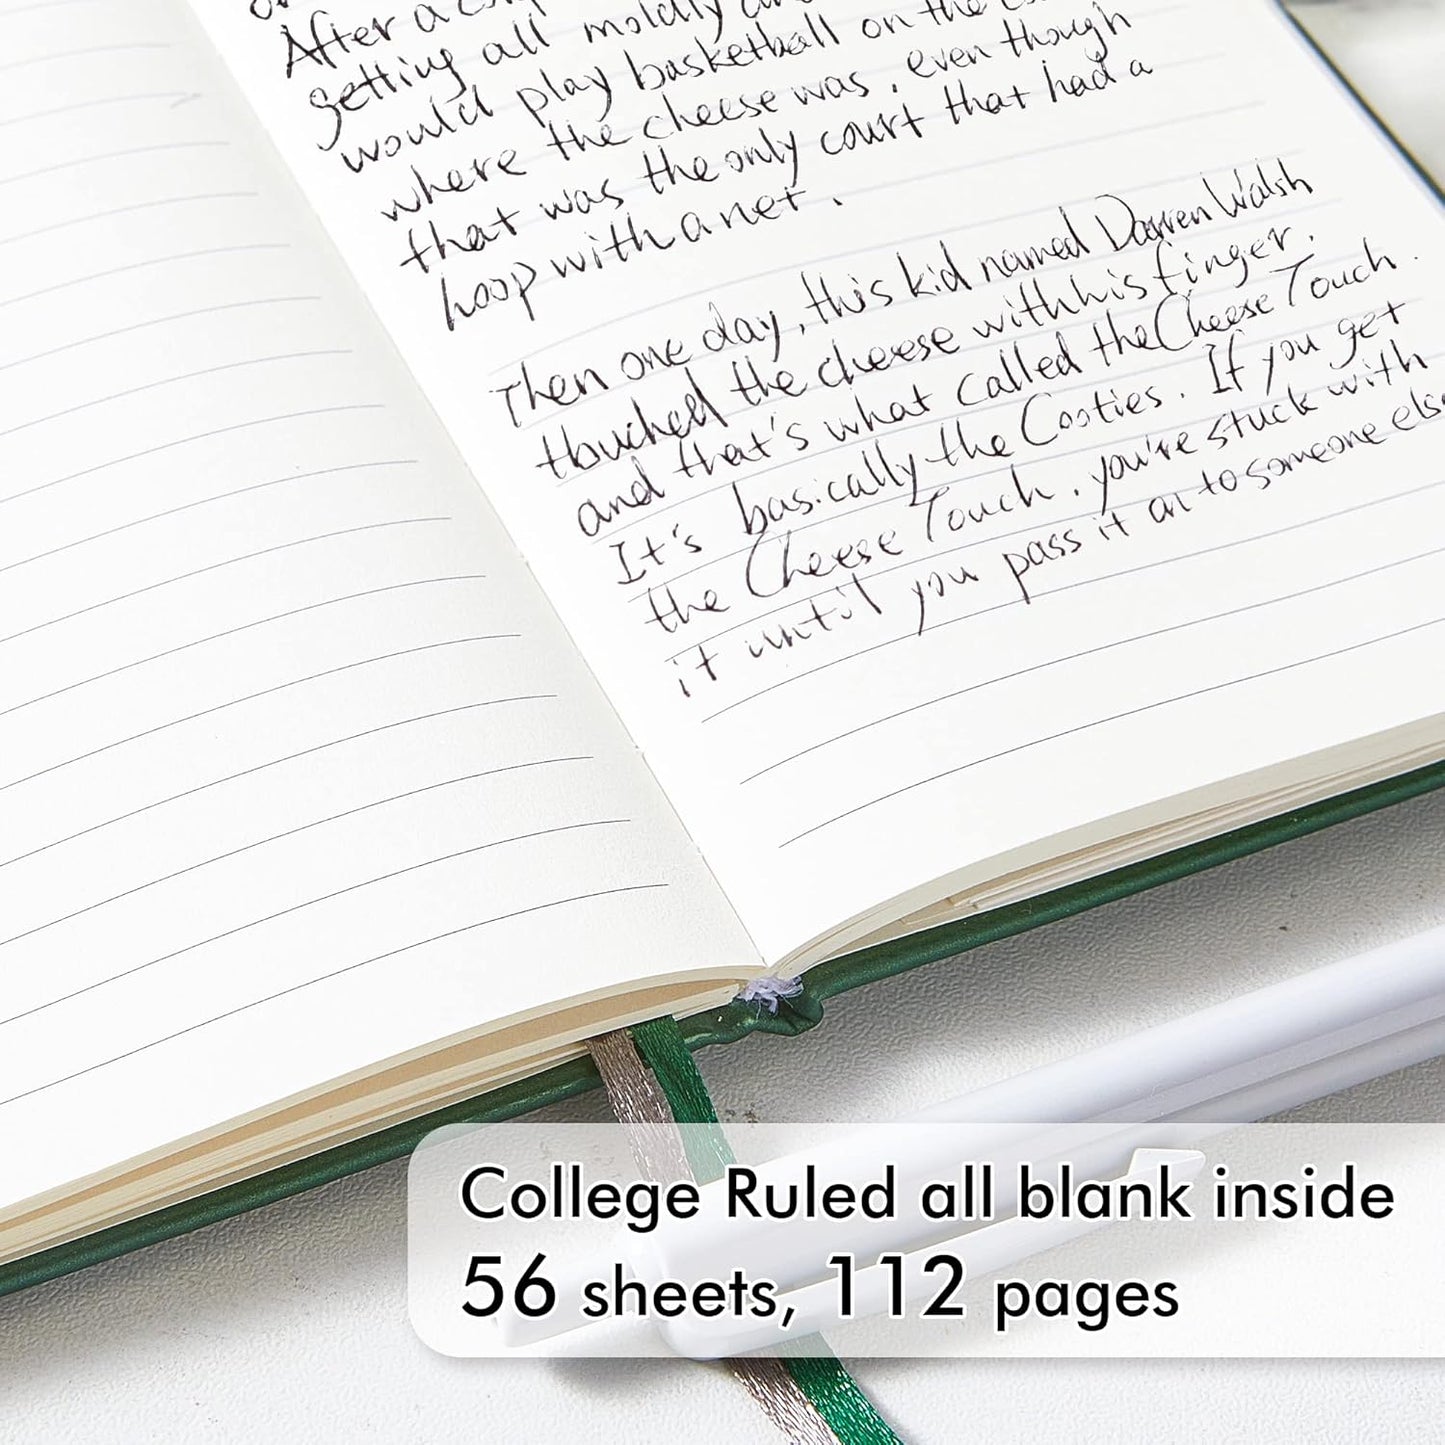 After a
getting all moldly
would play basketball on the
where the cheese was, even though
that was the only court that had a
hoop with a net.
Then one day, this kid named Darren Walsh
thouched the cheese with his finger.
and that's what called the Cheese Touch.
It's basically the Cooties. If you get
the Cheese Touch, you're stuck with
it until you pass it on to someone else
College Ruled all blank inside
56 sheets, 112 pages